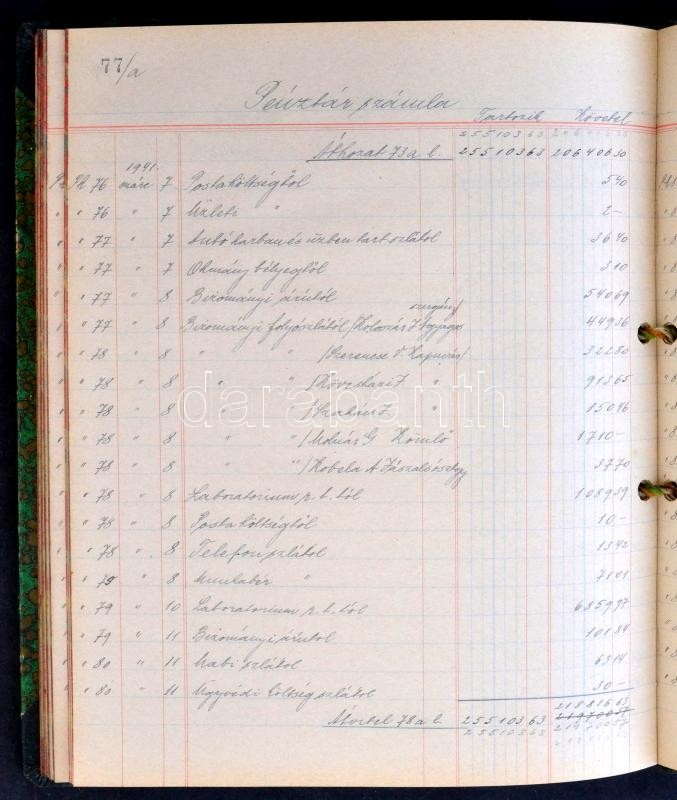 77/a
Pénztár számla
Tartozik Követel
25510363 20640630
Áthozat 73 a l. 25510363 20640630
Pl Pl 76 1941. márc 7 Postaköltségtől 540
" " 76 " 7 Üzleti " 2-
" " 77 " 7 Autó karban és üzben tart szlától 3640
" " 77 " 7 Okmány bélyegtől 310
" " 77 " 8 Bizományi árutól 54069
" " 77 " 8 Bizományi folyószlától / Kolozsi J 44936
" " 78 " 8 " " / Szerencse V Kapuvár / 32280
" " 78 " 8 " " / Kövesdári I. " 91365
" " 78 " 8 " " / 15046
" " 78 " 8 " " / Molnár G Komló 1710-
" " 78 " 8 " " / Kobela A Jászalsószgy 3770
" " 78 " 8 Laboratorium r. t. től 108939
" " 78 " 8 Postaköltségtől 10-
" " 78 " 8 Telefon szlától 1342
" " 79 " 8 Munkabér " 7101
" " 79 " 10 Laboratorium r. t. től 685997
" " 79 " 11 Bizományi árutól 10184
" " 80 " 11 Mabi szlától 6314
" " 80 " 11 Ügyvédi költség szlától 30-
21881663
Átvitel 78 a l. 25510363 21970057
25510363 21970057
darabanth